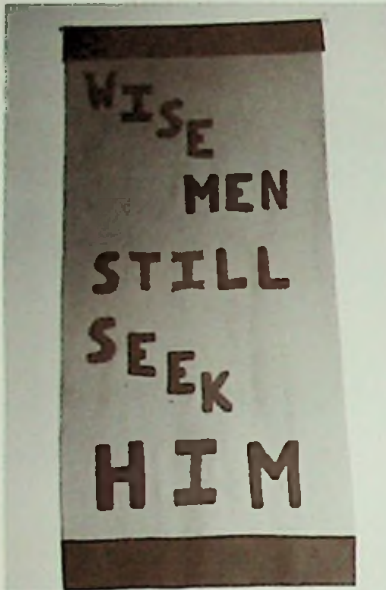 WISE
MEN
STILL
SEEK
HIM